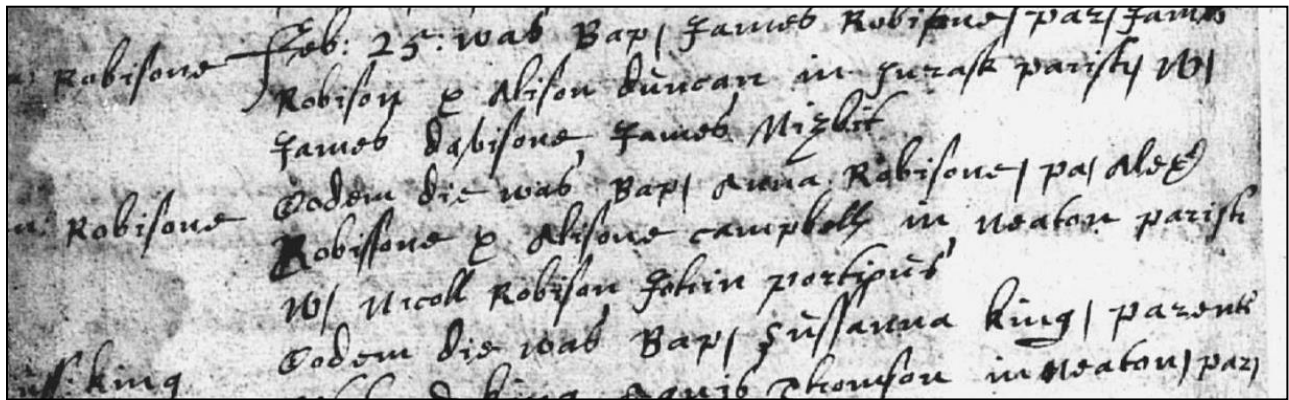 Robisone Feb: 25: was Bap/ James Robisone/ par/ James
Robison & Alison duncan in parish/ W/
James davisone James Nizbit
Eodem die was Bap/ Anna Robisone/ pa/ Alexr
Robisone Robissone & Alisone campbell in Neaton parish
W/ Nicoll Robison John portious
Eodem die was Bap/ Sussanna king/ parents
king king Agnis Thomson in Neaton/ par/